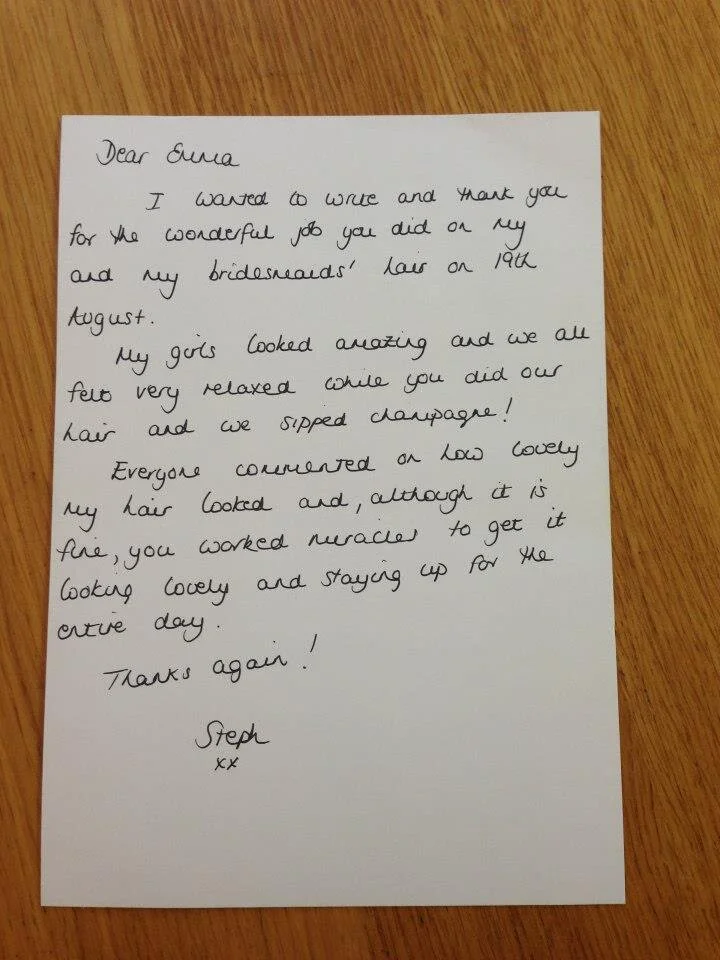 Dear Emma
I wanted to write and thank you
for the wonderful job you did on my
and my bridesmaids' hair on 19th
August.
My girls looked amazing and we all
felt very relaxed while you did our
hair and we sipped champagne!
Everyone commented on how lovely
my hair looked and, although it is
fine, you worked miracles to get it
looking lovely and staying up for the
entire day.
Thanks again!
Steph
xx